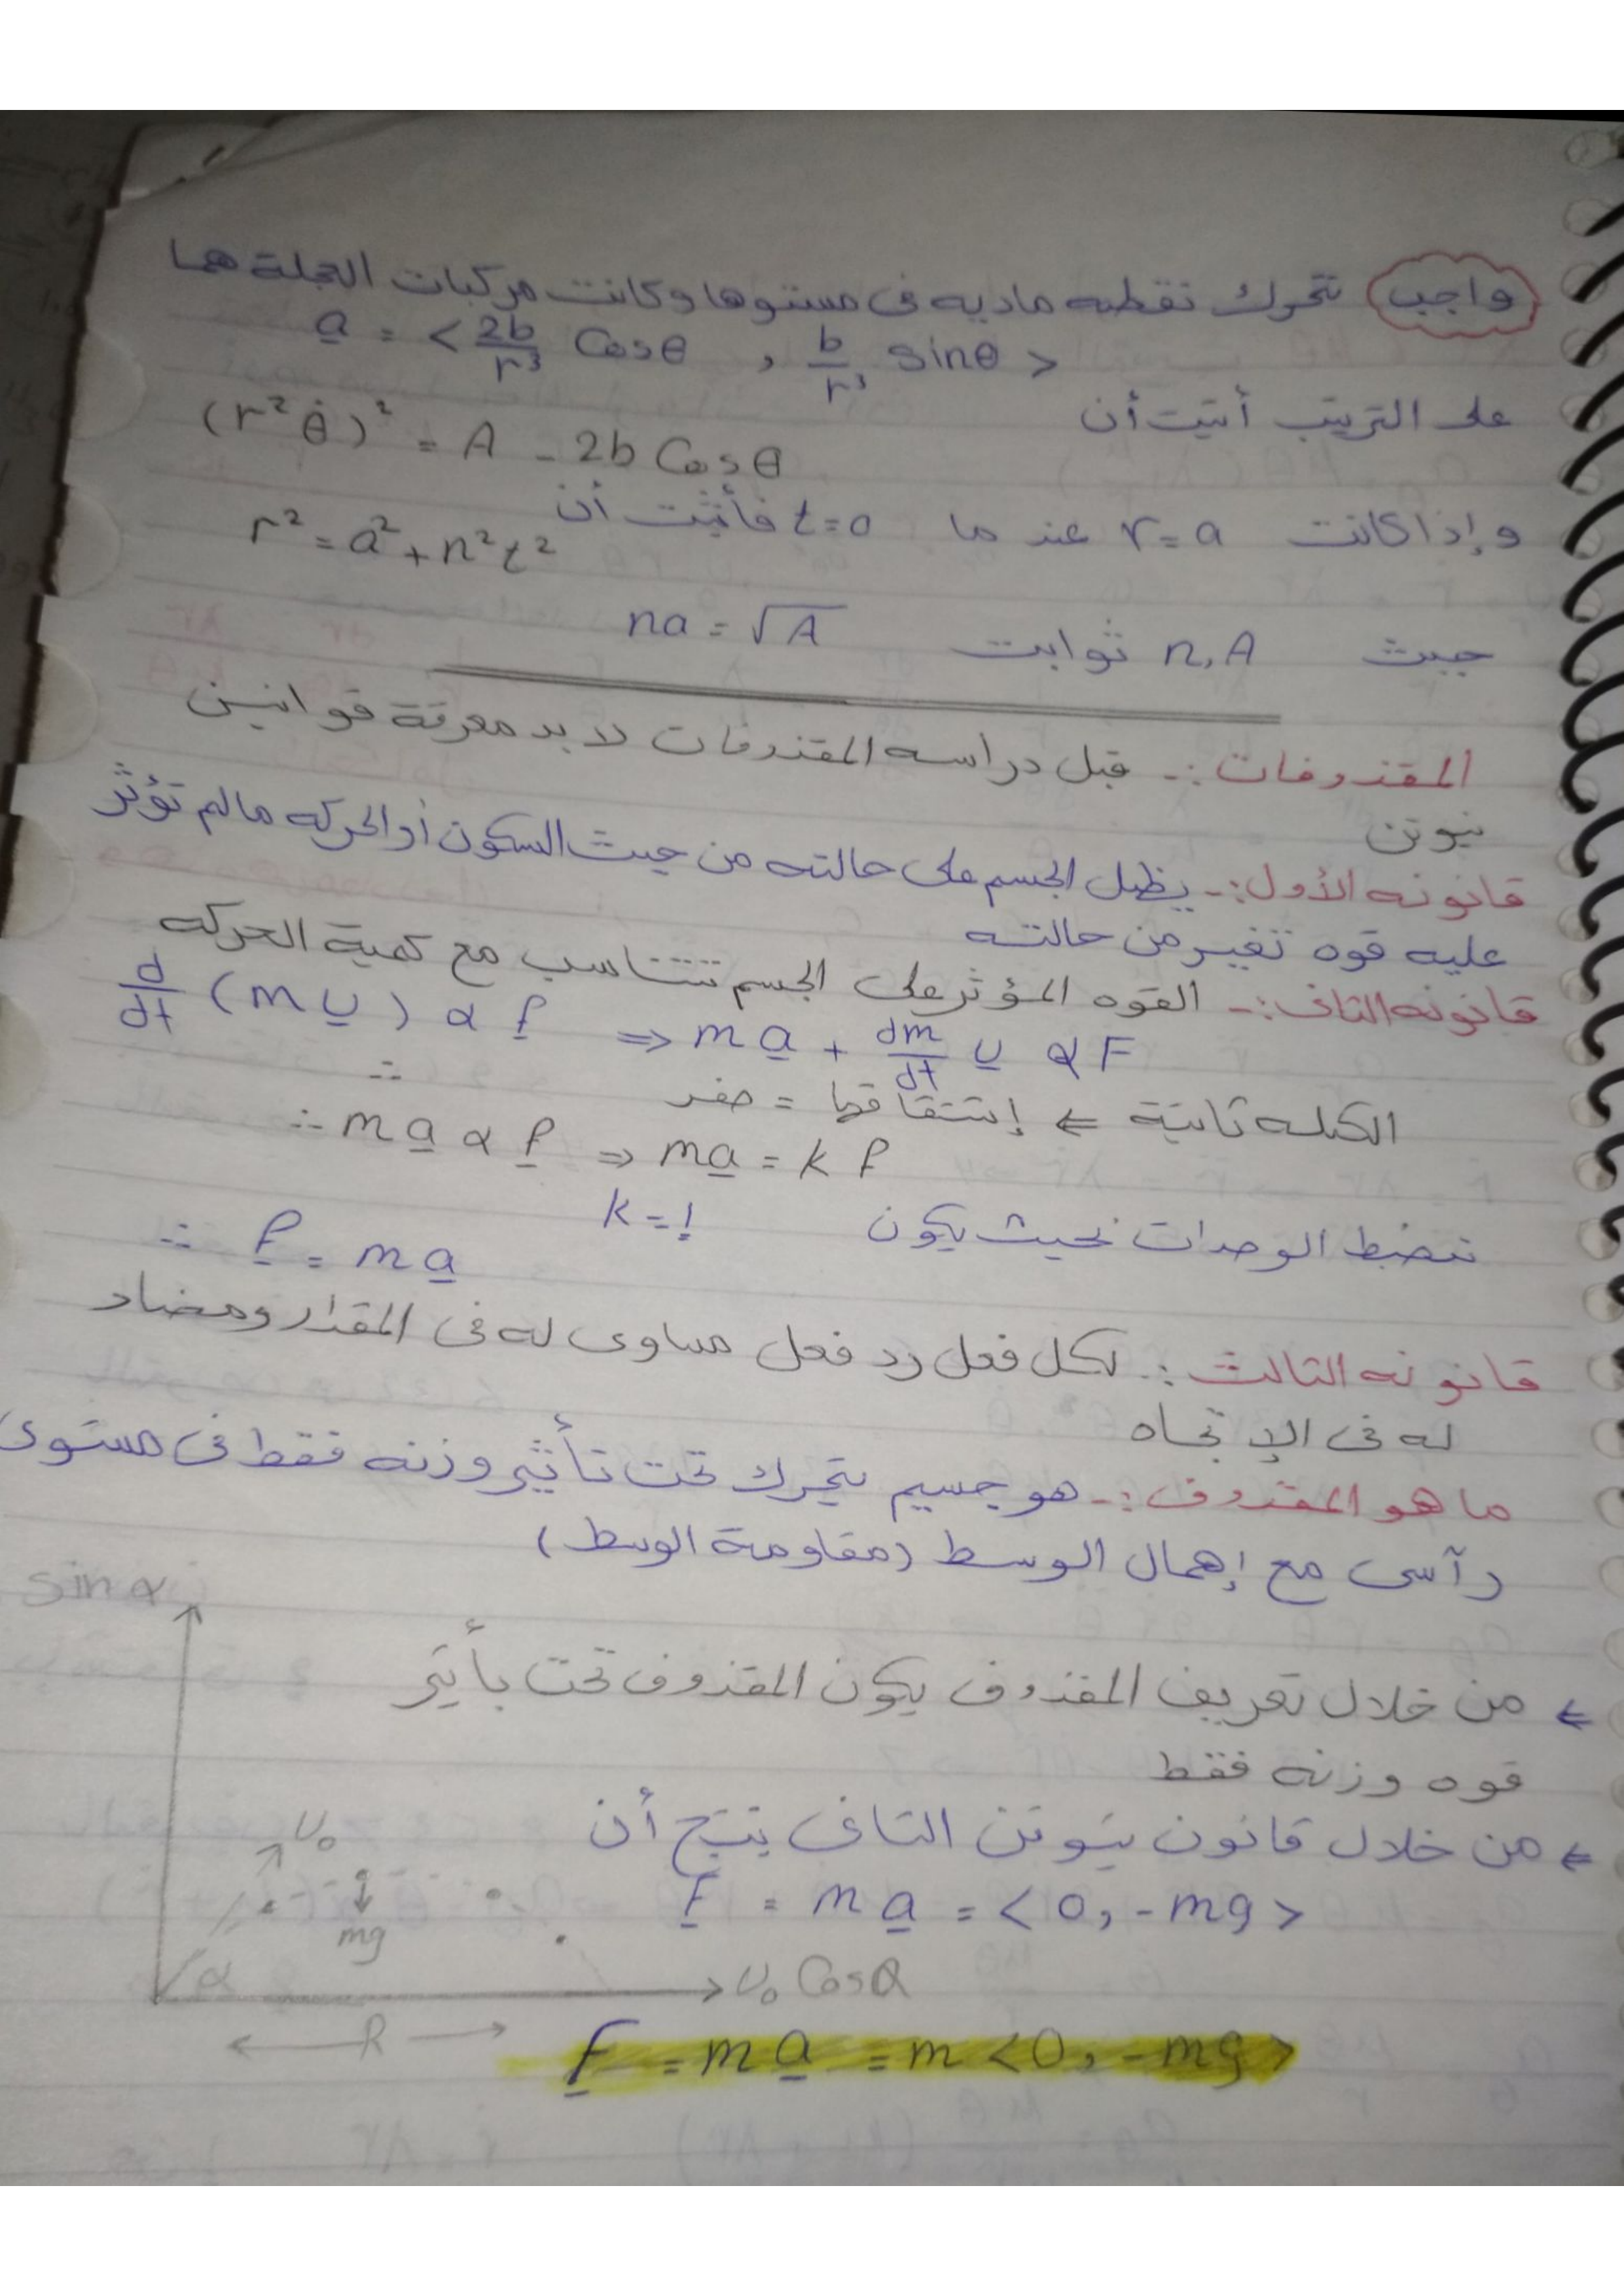 واجب تتحرك نقطه ماديه فى مستوها وكانت مركبات العجلة هما
a = < 2b/r³ Cosθ , b/r³ sinθ >
على الترتيب أثبت أن
(r² θ̇)² = A - 2b Cosθ
وإذا كانت r = a عند ما t = 0 فأثبت أن
r² = a² + n² t²
حيث n, A ثوابت na = √A
المقذوفات :- قبل دراسه المقذوفات لا بد معرفة قوانين
نيوتن
قانونه الأول :- يظل الجسم على حالته من حيث السكون أو الحركه مالم تؤثر
عليه قوه تغير من حالته
قانونه الثانى :- القوه المؤثر على الجسم تتناسب مع كمية الحركه
d/dt (m v) α f ⇒ m a + dm/dt v α F
الكتله ثابتة ⇐ إشتقاقها = صفر ∴
∴ m a α f ⇒ m a = k f
نضبط الوحدات بحيث يكون k = 1
∴ f = m a
قانونه الثالث :- لكل فعل رد فعل مساوى له فى المقدار ومضاد
له فى الإتجاه
ما هو المقذوف :- هو جسيم يتحرك تحت تأثير وزنه فقط فى مستوى
رآسى مع إهمال الوسط (مقاومة الوسط)
sin α
⇐ من خلال تعريف المقذوف يكون المقذوف تحت بأثير
قوه وزنه فقط
⇐ من خلال قانون نيوتن الثانى ينتج أن
F = m a = < 0, -mg >
v₀
mg
α
v₀ Cosα
R
F = m a = m < 0, -mg >